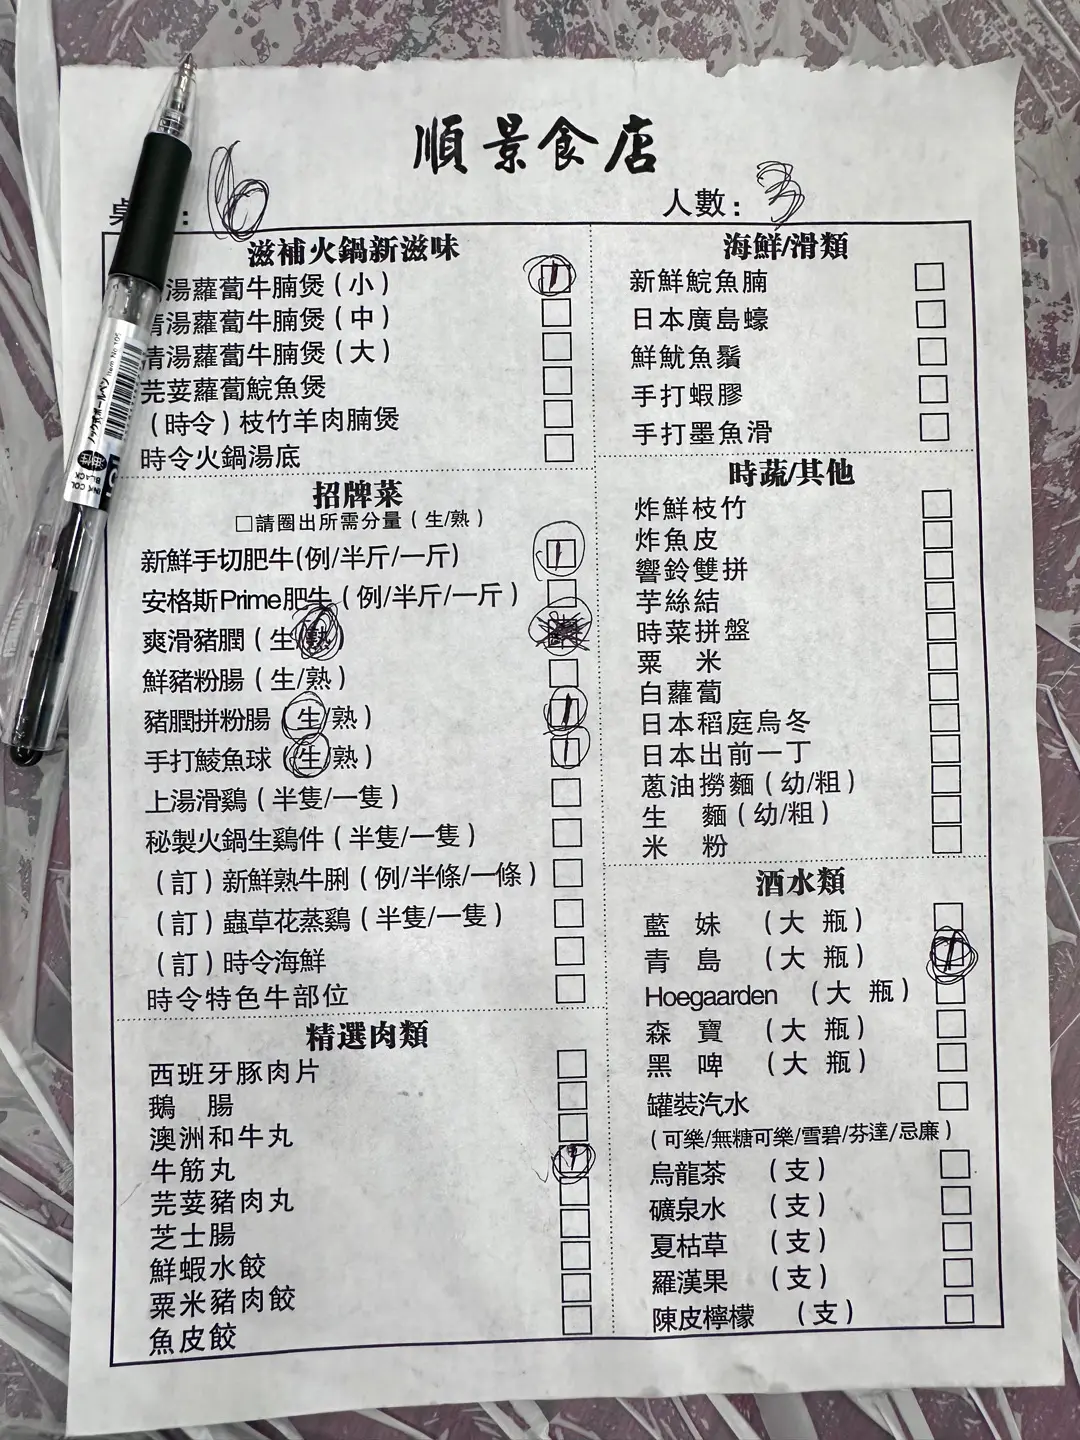 順景食店
: 6
人數: 3
滋補火鍋新滋味
湯蘿蔔牛腩煲(小) 1
清湯蘿蔔牛腩煲(中)
清湯蘿蔔牛腩煲(大)
芫荽蘿蔔鯇魚煲
(時令)枝竹羊肉腩煲
時令火鍋湯底
招牌菜
□請圈出所需分量(生/熟)
新鮮手切肥牛(例/半斤/一斤) 1
安格斯Prime肥牛(例/半斤/一斤)
爽滑豬膶(生/熟)
鮮豬粉腸(生/熟)
豬膶拼粉腸(生/熟) 1
手打鯪魚球(生/熟) 1
上湯滑鷄(半隻/一隻)
秘製火鍋生鷄件(半隻/一隻)
(訂)新鮮熟牛脷(例/半條/一條)
(訂)蟲草花蒸鷄(半隻/一隻)
(訂)時令海鮮
時令特色牛部位
精選肉類
西班牙豚肉片
鵝 腸
澳洲和牛丸
牛筋丸 1
芫荽豬肉丸
芝士腸
鮮蝦水餃
粟米豬肉餃
魚皮餃
海鮮/滑類
新鮮鯇魚腩
日本廣島蠔
鮮魷魚鬚
手打蝦膠
手打墨魚滑
時蔬/其他
炸鮮枝竹
炸魚皮
響鈴雙拼
芋絲結
時菜拼盤
粟 米
白蘿蔔
日本稻庭烏冬
日本出前一丁
蔥油撈麵(幼/粗)
生 麵(幼/粗)
米 粉
酒水類
藍 妹 (大 瓶)
青 島 (大 瓶) 1
Hoegaarden (大 瓶)
森 寶 (大 瓶)
黑 啤 (大 瓶)
罐裝汽水
(可樂/無糖可樂/雪碧/芬達/忌廉)
烏龍茶 (支)
礦泉水 (支)
夏枯草 (支)
羅漢果 (支)
陳皮檸檬 (支)
ノック式ボールペン
Item No 105
油性
BLACK